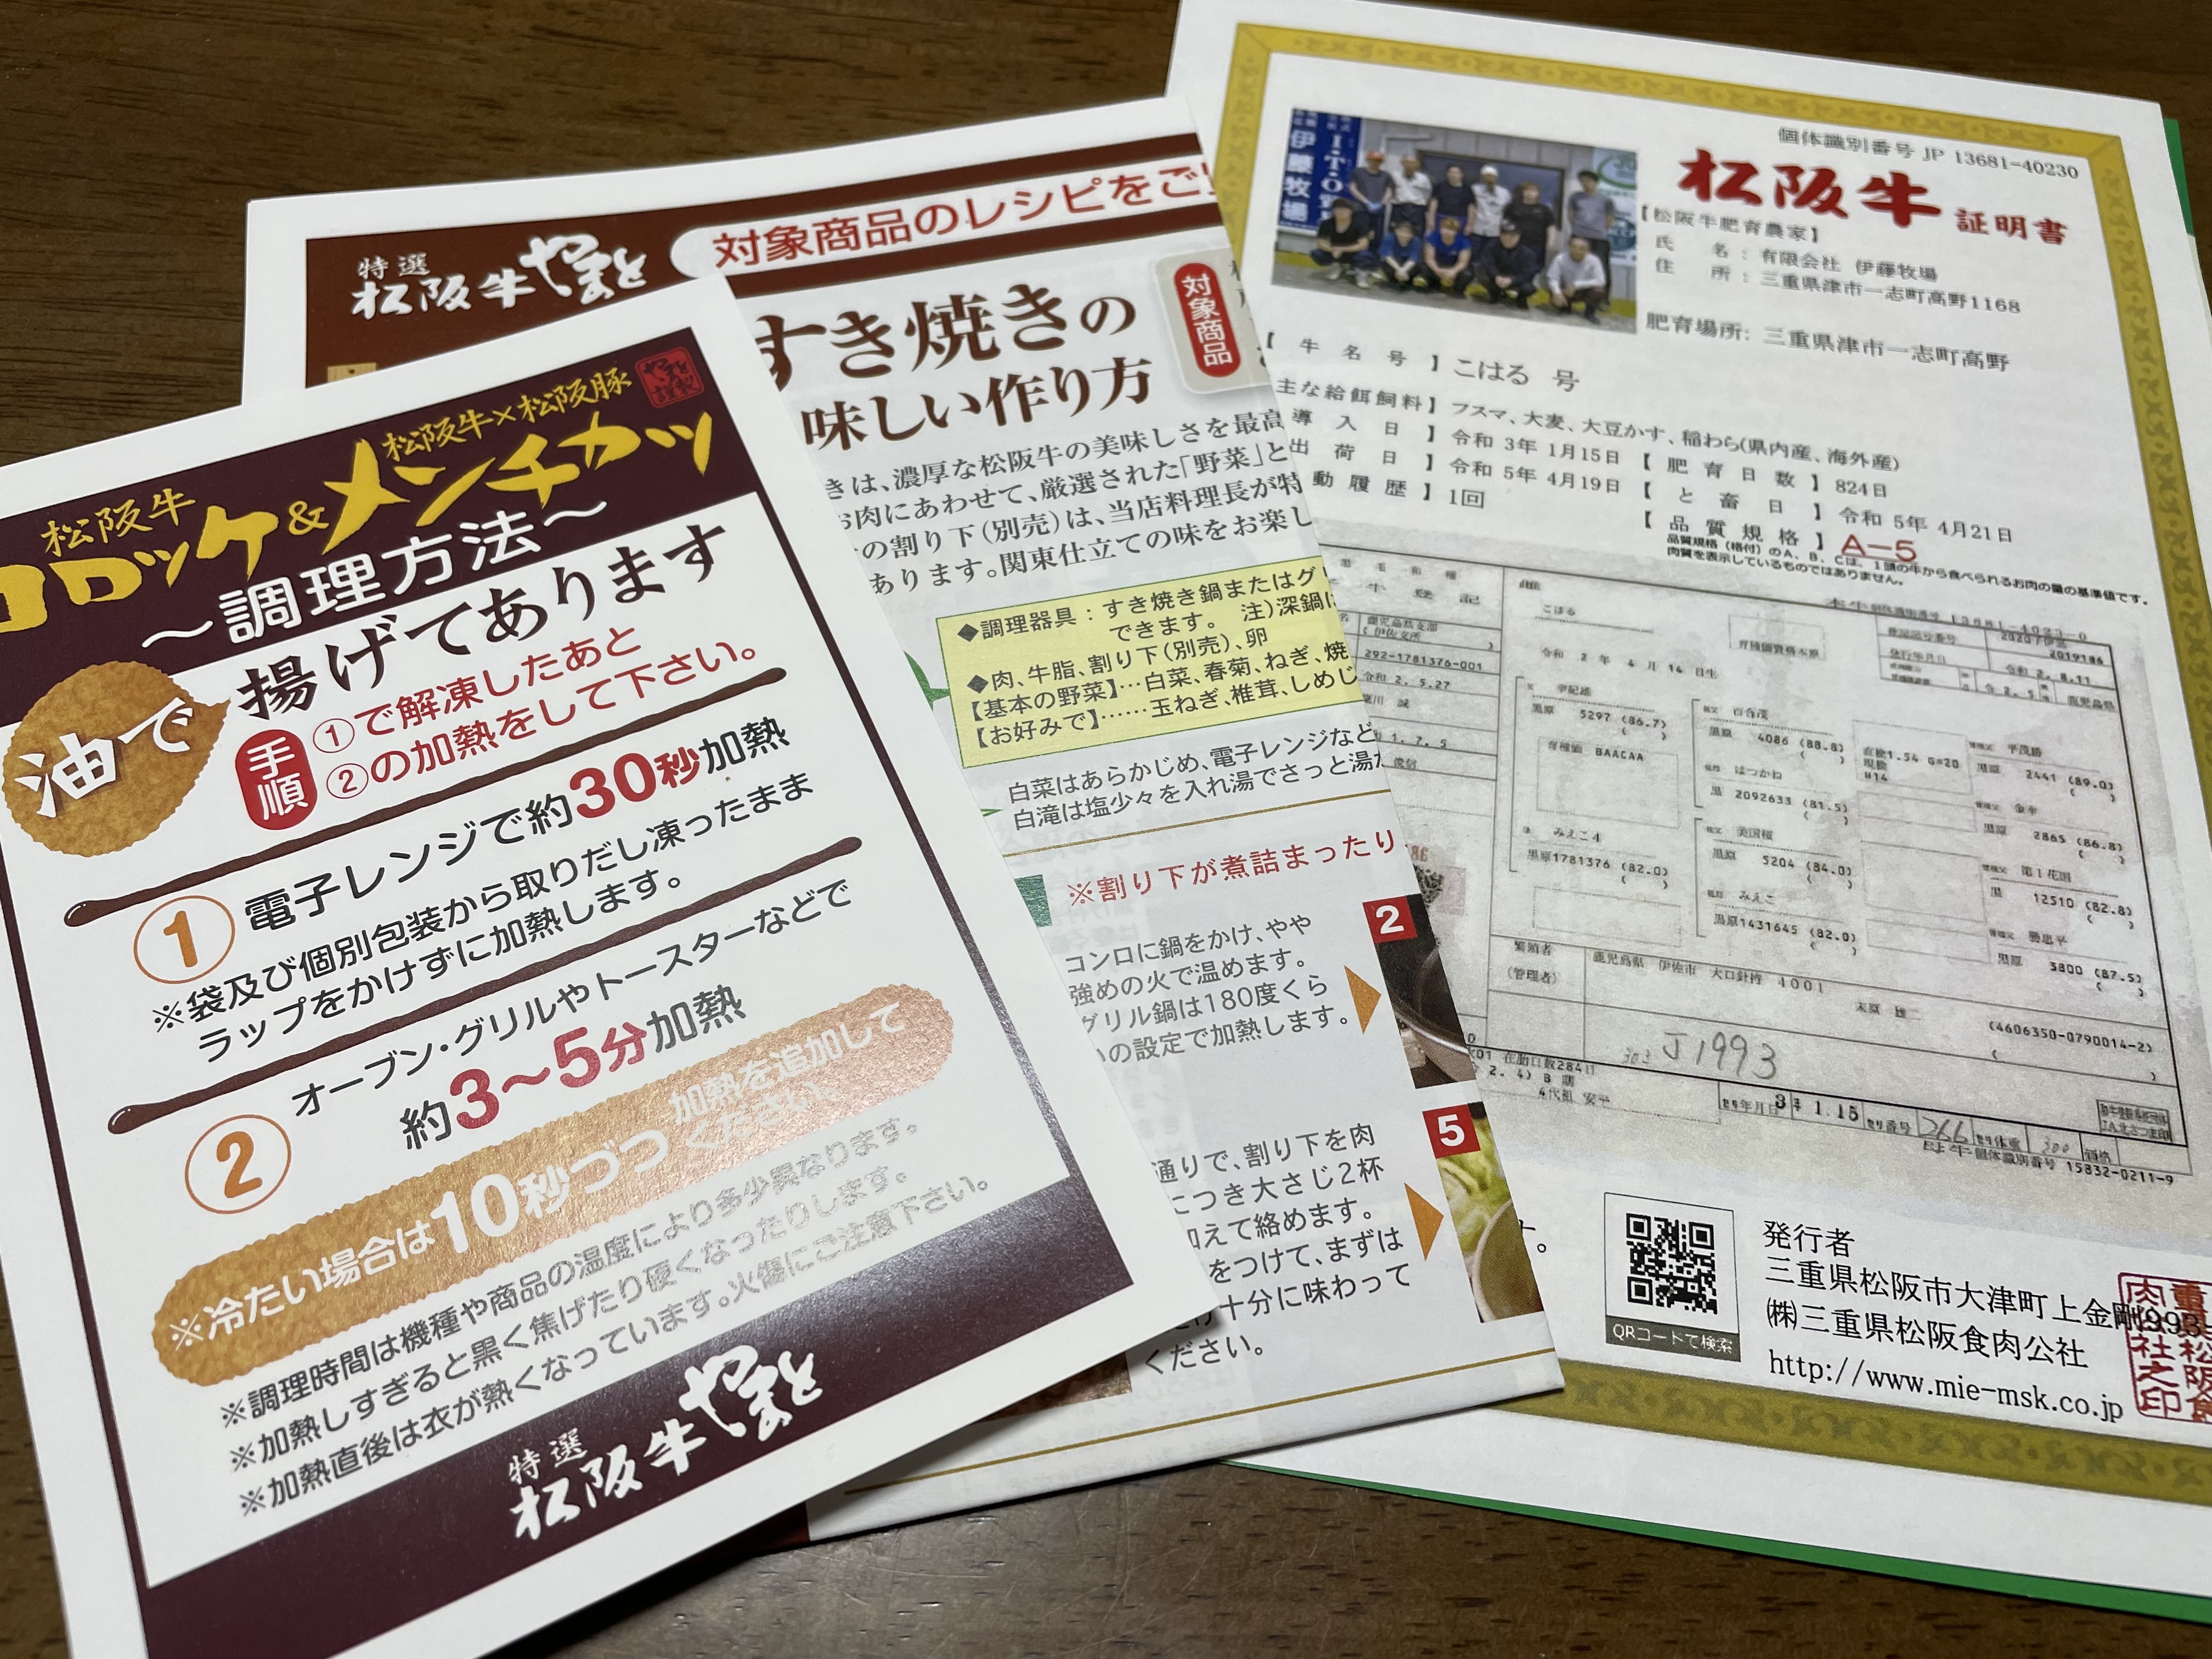 松阪牛×松阪豚
松阪牛
コロッケ&メンチカツ
〜調理方法〜
油で
揚げてあります
手順
①で解凍したあと
②の加熱をして下さい。
1
電子レンジで約30秒加熱
※袋及び個別包装から取りだし凍ったまま
ラップをかけずに加熱します。
2
オーブン・グリルやトースターなどで
約3〜5分加熱
※冷たい場合は10秒づつ
加熱を追加して
ください
※調理時間は機種や商品の温度により多少異なります。
※加熱しすぎると黒く焦げたり硬くなったりします。
※加熱直後は衣が熱くなっています。火傷にご注意下さい。
特選
松阪牛やまと
特選
松阪牛やまと
対象商品のレシピをご
すき焼きの
味しい作り方
対象商品
きは、濃厚な松阪牛の美味しさを最高
お肉にあわせて、厳選された「野菜」と
の割り下(別売)は、当店料理長が特
あります。関東仕立ての味をお楽し
◆調理器具:すき焼き鍋またはグ
できます。 注)深鍋に
◆肉、牛脂、割り下(別売)、卵
【基本の野菜】…白菜、春菊、ねぎ、焼
【お好みで】……玉ねぎ、椎茸、しめじ
白菜はあらかじめ、電子レンジなど
白滝は塩少々を入れ湯でさっと湯
※割り下が煮詰まったり
2
コンロに鍋をかけ、やや
強めの火で温めます。
グリル鍋は180度くら
いの設定で加熱します。
5
通りで、割り下を肉
につき大さじ2杯
加えて絡めます。
をつけて、まずは
十分に味わって
ください。
個体識別番号 JP 13681-40230
松阪牛 証明書
【松阪牛肥育農家】
氏 名:有限会社 伊藤牧場
住 所:三重県津市一志町高野1168
肥育場所: 三重県津市一志町高野
伊藤牧場
【 牛 名 号 】こはる 号
主な給餌飼料】フスマ、大麦、大豆かす、稲わら(県内産、海外産)
導 入 日 】令和 3年 1月15日 【 肥 育 日 数 】824日
出 荷 日 】令和 5年 4月19日 【 と 畜 日 】令和 5年 4月21日
動 履 歴 】1回 【 品 質 規 格 】A-5
品質規格(格付)のA、B、Cは、1頭の牛から食べられるお肉の量の基準値です。
肉質を表示しているものではありません。
黒 毛 和 種
こはる
292-1781376-001
令和 2. 5.27
令和 2 年 4 月 14 日生
2019186
令和 2. 8.11
鹿児島県
黒原 5297 (86.7)
育種価 BAACAA
みえこ4
黒原1781376 (82.0)
百合茂
黒原 4086 (88.8)
はつかね
黒 2092633 (81.5)
美国桜
黒原 5204 (84.0)
みえこ
黒原1431645 (82.0)
平茂勝
黒原 2441 (89.0)
金幸
黒原 2865 (86.8)
第1花国
黒 12510 (82.8)
勝忠平
黒原 3800 (87.5)
繁殖者
(管理者)
鹿児島県 伊佐市 大口針持 4001
(4606350-0790014-2)
J1993
在胎日数284日
4代祖 安平
1.15
母牛個体識別番号 15832-0211-9
QRコードで検索
発行者
三重県松阪市大津町上金剛993-
㈱三重県松阪食肉公社
http://www.mie-msk.co.jp